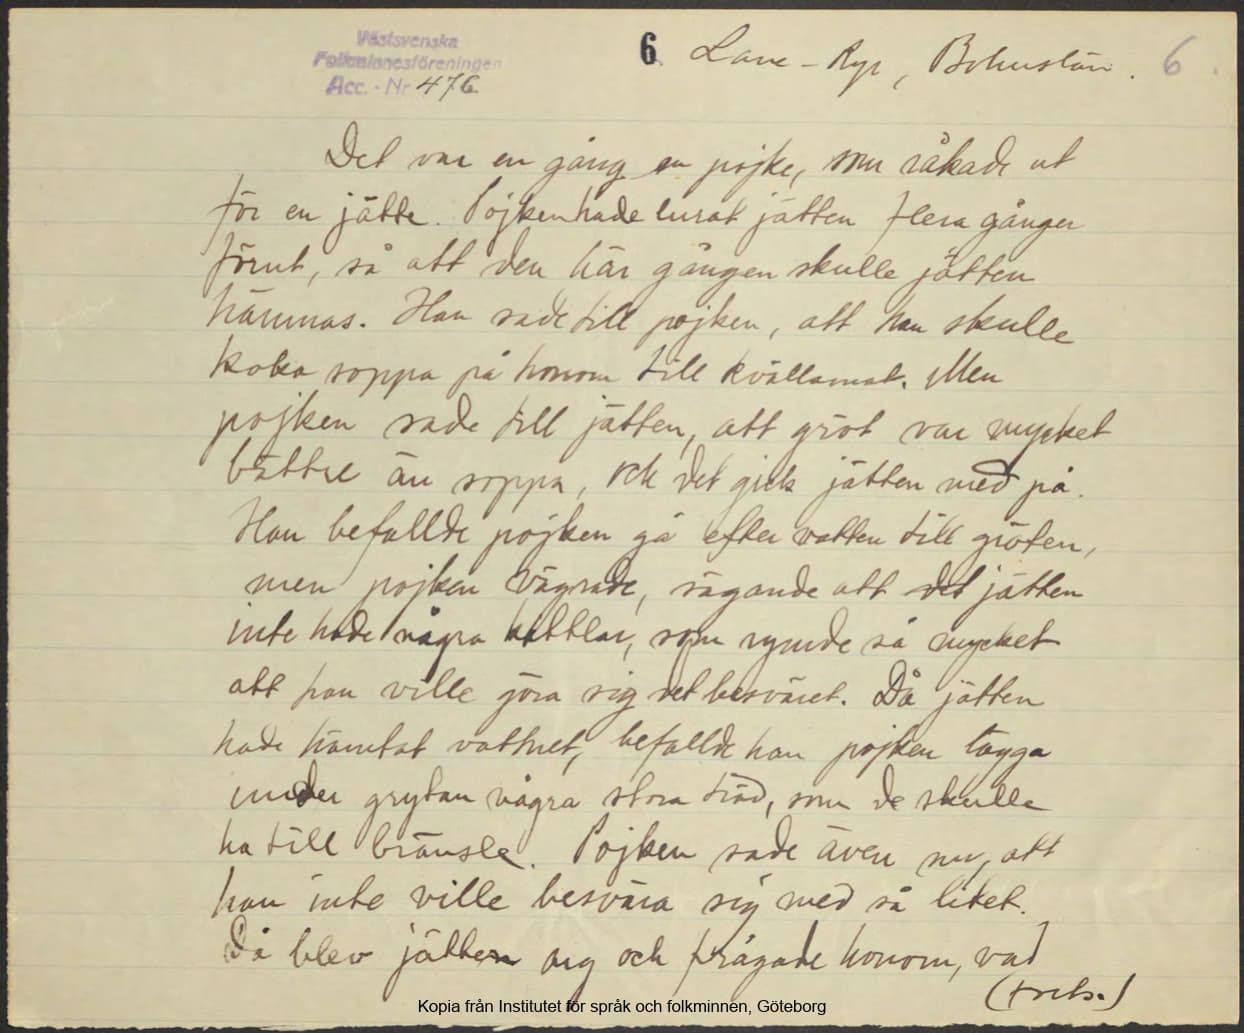 Västsvenska
Folkminnesföreningen
Acc. - Nr 476
6 Lane-Ryr, Bohuslän. 6
Det var en gång en pojke, som råkade ut
för en jätte. Pojken hade lurat jätten flera gånger
förut, så att den här gången skulle jätten
hämnas. Han sade till pojken, att han skulle
koka soppa på honom till kvällamat. Men
pojken sade till jätten, att gröt var mycket
bättre än soppa, och det gick jätten med på.
Han befallde pojken gå efter vatten till gröten,
men pojken vägrade, sägande att det jätten
inte hade några kittlar, som rymde så mycket
att han ville göra sig det besväret. Då jätten
hade hämtat vattnet, befallde han pojken lägga
under grytan några stora träd, som de skulle
ha till bränsle. Pojken sade även nu, att
han inte ville besvära sig med så litet.
Då blev jätten arg och frågade honom, vad
(forts.)
Kopia från Institutet för språk och folkminnen, Göteborg